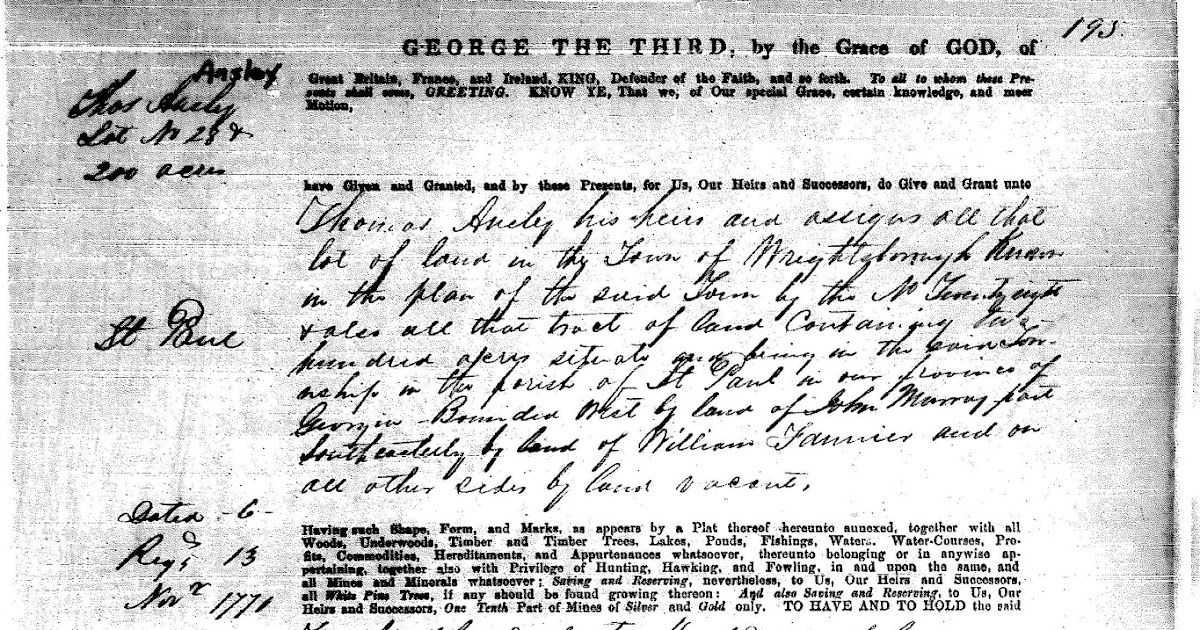 195
GEORGE THE THIRD, by the Grace of GOD, of
Great Britain, France, and Ireland, KING, Defender of the Faith, and so forth. To all to whom these Pre-
sents shall come, GREETING. KNOW YE, That we, of Our special Grace, certain knowledge, and meer
Motion,
Ansley
Thos Ansley
Lot No 28 &
200 acres
have Given and Granted, and by these Presents, for Us, Our Heirs and Successors, do Give and Grant unto
Thomas Ansley his heirs and assigns all that
lot of land in the Town of Wrightsborough Known
in the plan of the said Town by the No Twenty eight
& also all that tract of land Containing two
hundred acres situate and being in the said Tow-
nship in the parish of St Paul in our province of
Georgia - Bounded West by land of John Murray part
Southeasterly by land of William Farmer and on
all other sides by land vacant,
St Paul
Dated - 6 -
Regd 13
Novr 1770
Having such Shape, Form, and Marks, as appears by a Plat thereof hereunto annexed, together with all
Woods, Underwoods, Timber and Timber Trees, Lakes, Ponds, Fishings, Waters, Water-Courses, Pro-
fits, Commodities, Hereditaments, and Appurtenances whatsoever, thereunto belonging or in anywise ap-
pertaining, together also with Privilege of Hunting, Hawking, and Fowling, in and upon the same, and
all Mines and Minerals whatsoever; Saving and Reserving, nevertheless, to Us, Our Heirs and Successors,
all White Pine Trees, if any should be found growing thereon: And also Saving and Reserving, to Us, Our
Heirs and Successors, One Tenth Part of Mines of Silver and Gold only. TO HAVE AND TO HOLD the said